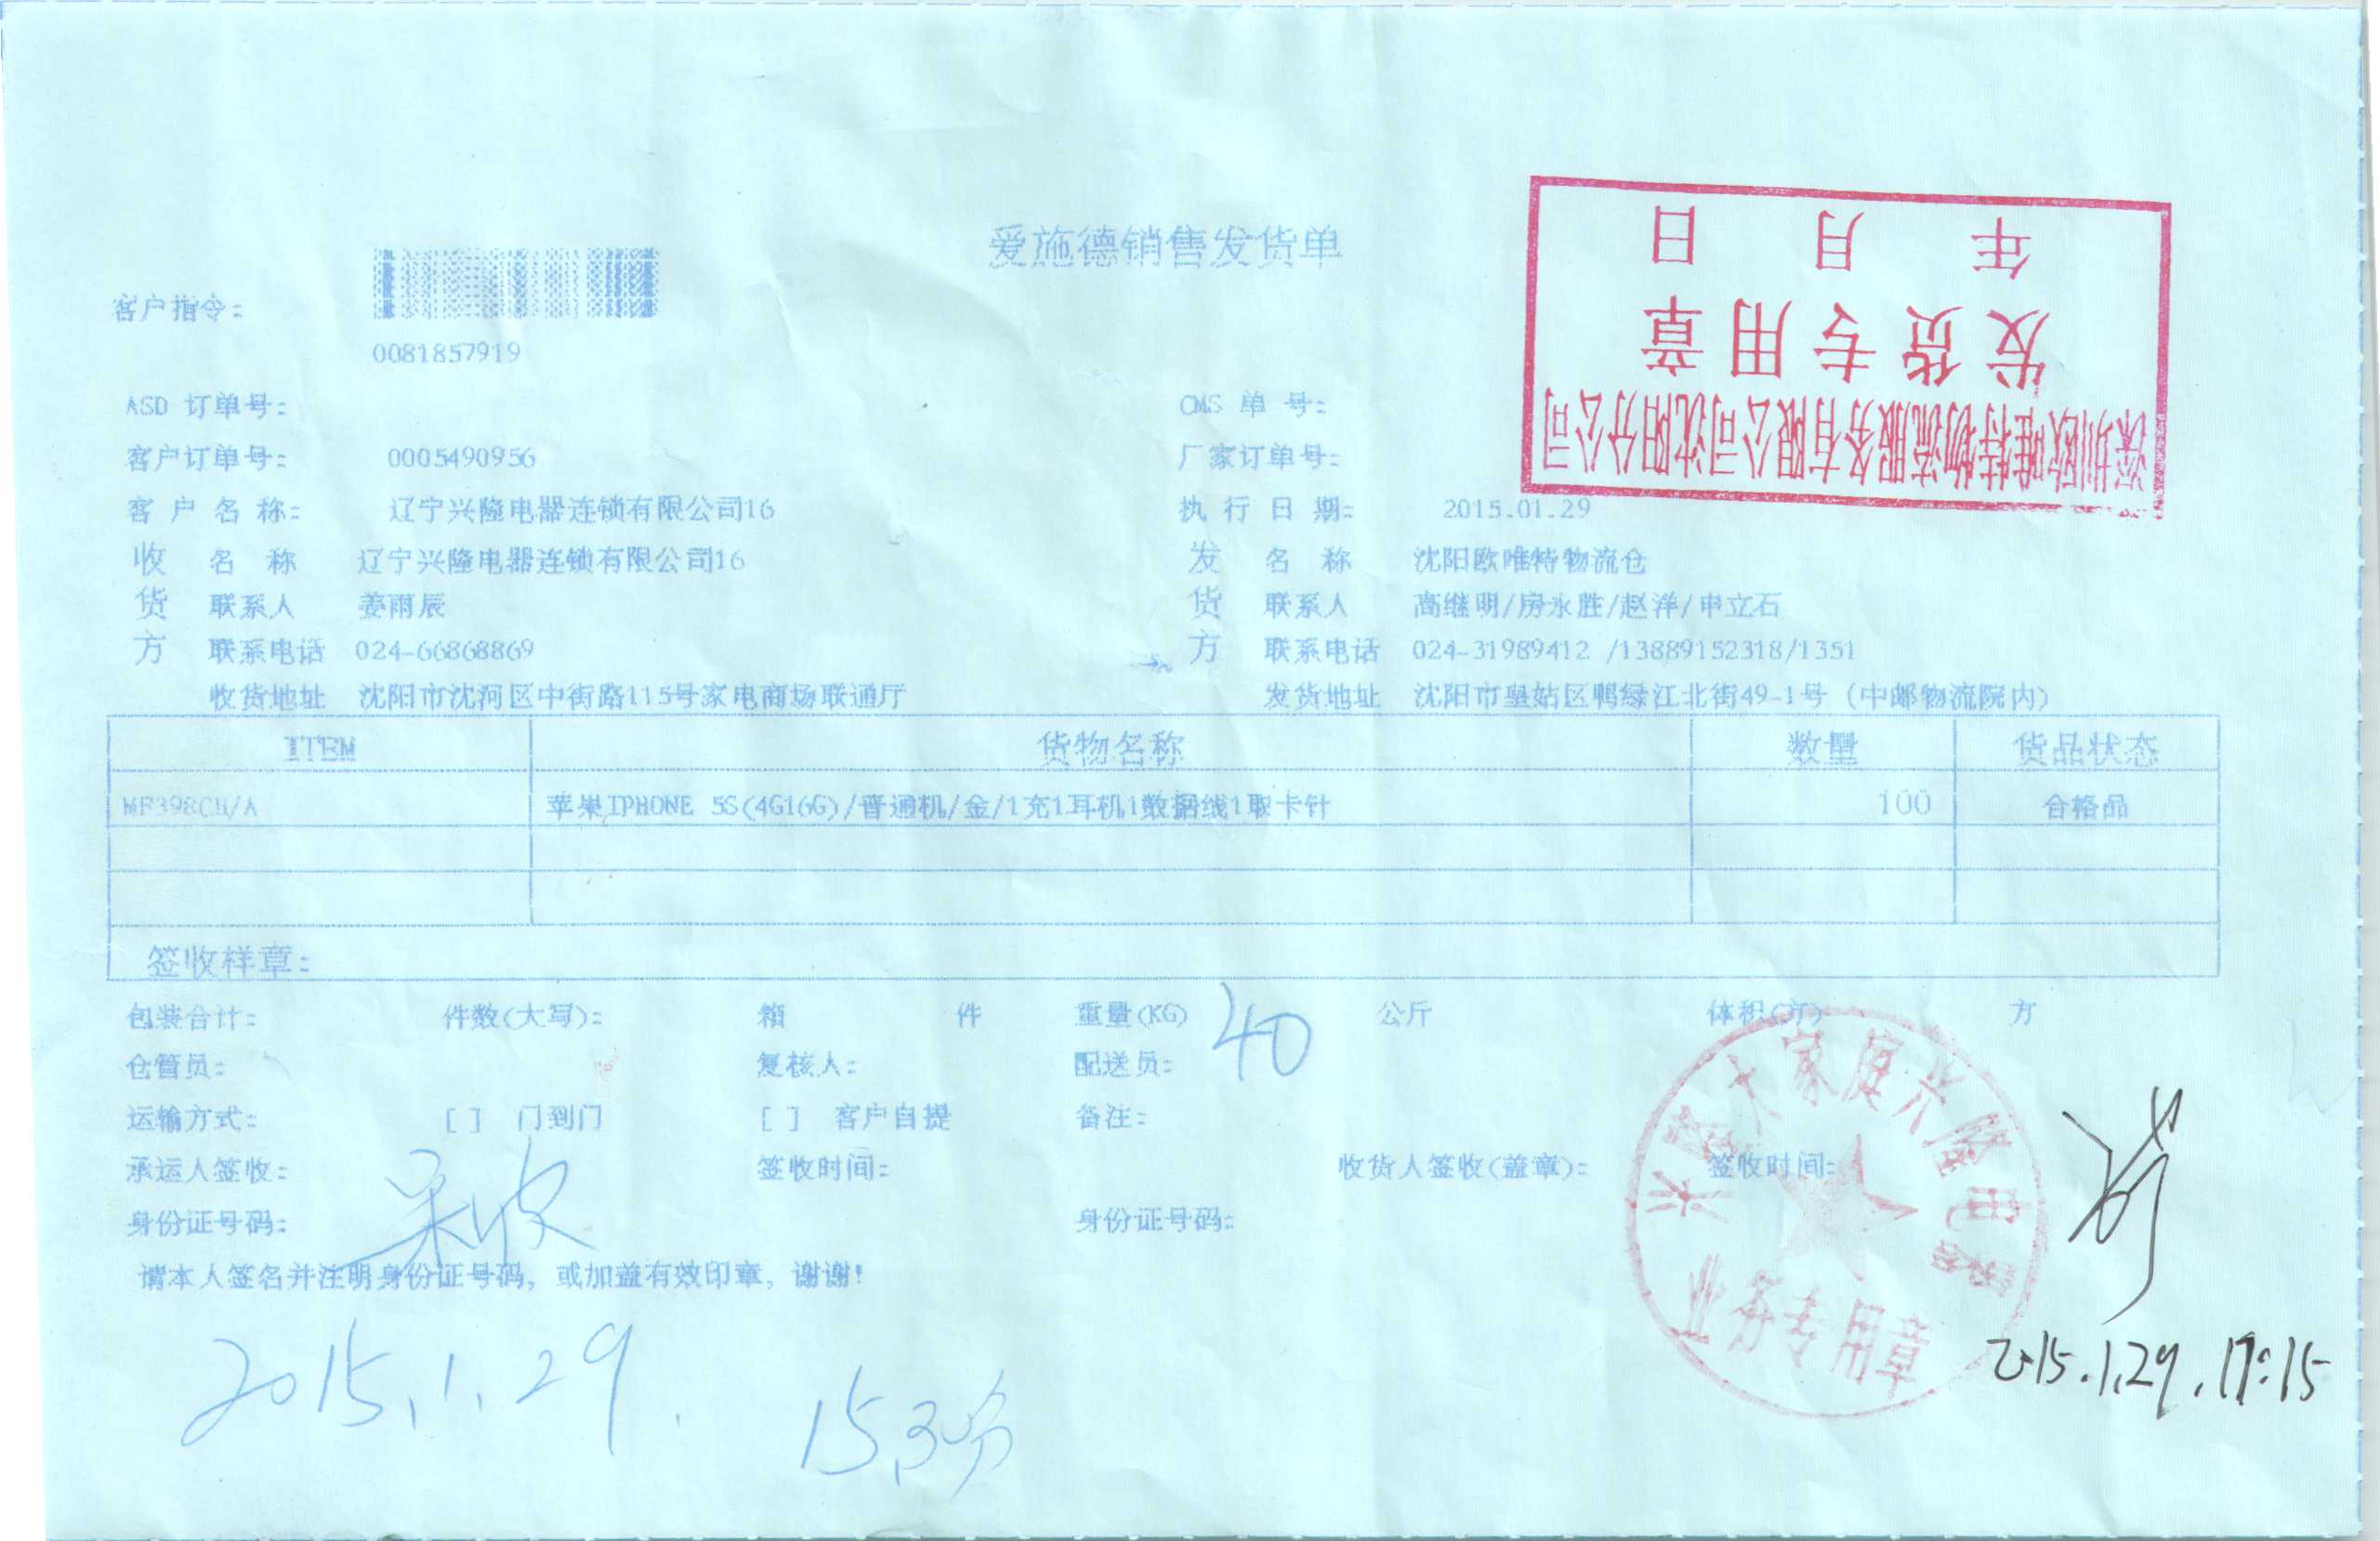 爱施德销售发货单
客户指令:
0081857919
ASD 订单号:
CMS 单 号:
客户订单号: 0005490956
厂家订单号:
客 户 名 称: 辽宁兴隆电器连锁有限公司16
执 行 日 期: 2015.01.29
收 名 称 辽宁兴隆电器连锁有限公司16
发 名 称 沈阳欧唯特物流仓
货 联系人 姜雨辰
货 联系人 高继明/房永胜/赵洋/申立石
方 联系电话 024-66868869
方 联系电话 024-31989412 /13889152318/1351
收货地址 沈阳市沈河区中街路115号家电商场联通厅
发货地址 沈阳市皇姑区鸭绿江北街49-1号 (中邮物流院内)
ITEM 货物名称 数量 货品状态
MF398CH/A 苹果IPHONE 5S(4G16G)/普通机/金/1充1耳机1数据线1取卡针 100 合格品
签收样章:
包装合计: 件数(大写): 箱 件 重量(KG) 40 公斤 体积(方) 方
仓管员: 复核人: 配送员:
运输方式: [ ] 门到门 [ ] 客户自提 备注:
承运人签收: 签收时间: 收货人签收(盖章): 签收时间:
身份证号码: 身份证号码:
请本人签名并注明身份证号码, 或加盖有效印章, 谢谢!
2015.1.29.
2015.1.29.17:15
深圳欧唯特物流服务有限公司沈阳分公司
发货专用章
年 月 日
兴隆大家庭兴隆电器
业务专用章